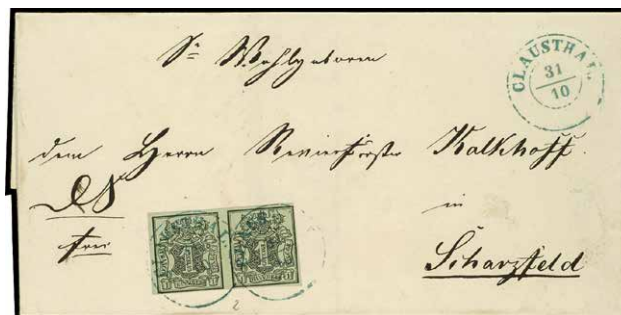 Sr Wohlgeboren
CLAUSTHAL
31
10
dem Herrn Revierförster Kalkhoff
in
frei
Scharzfeld
1
1
2